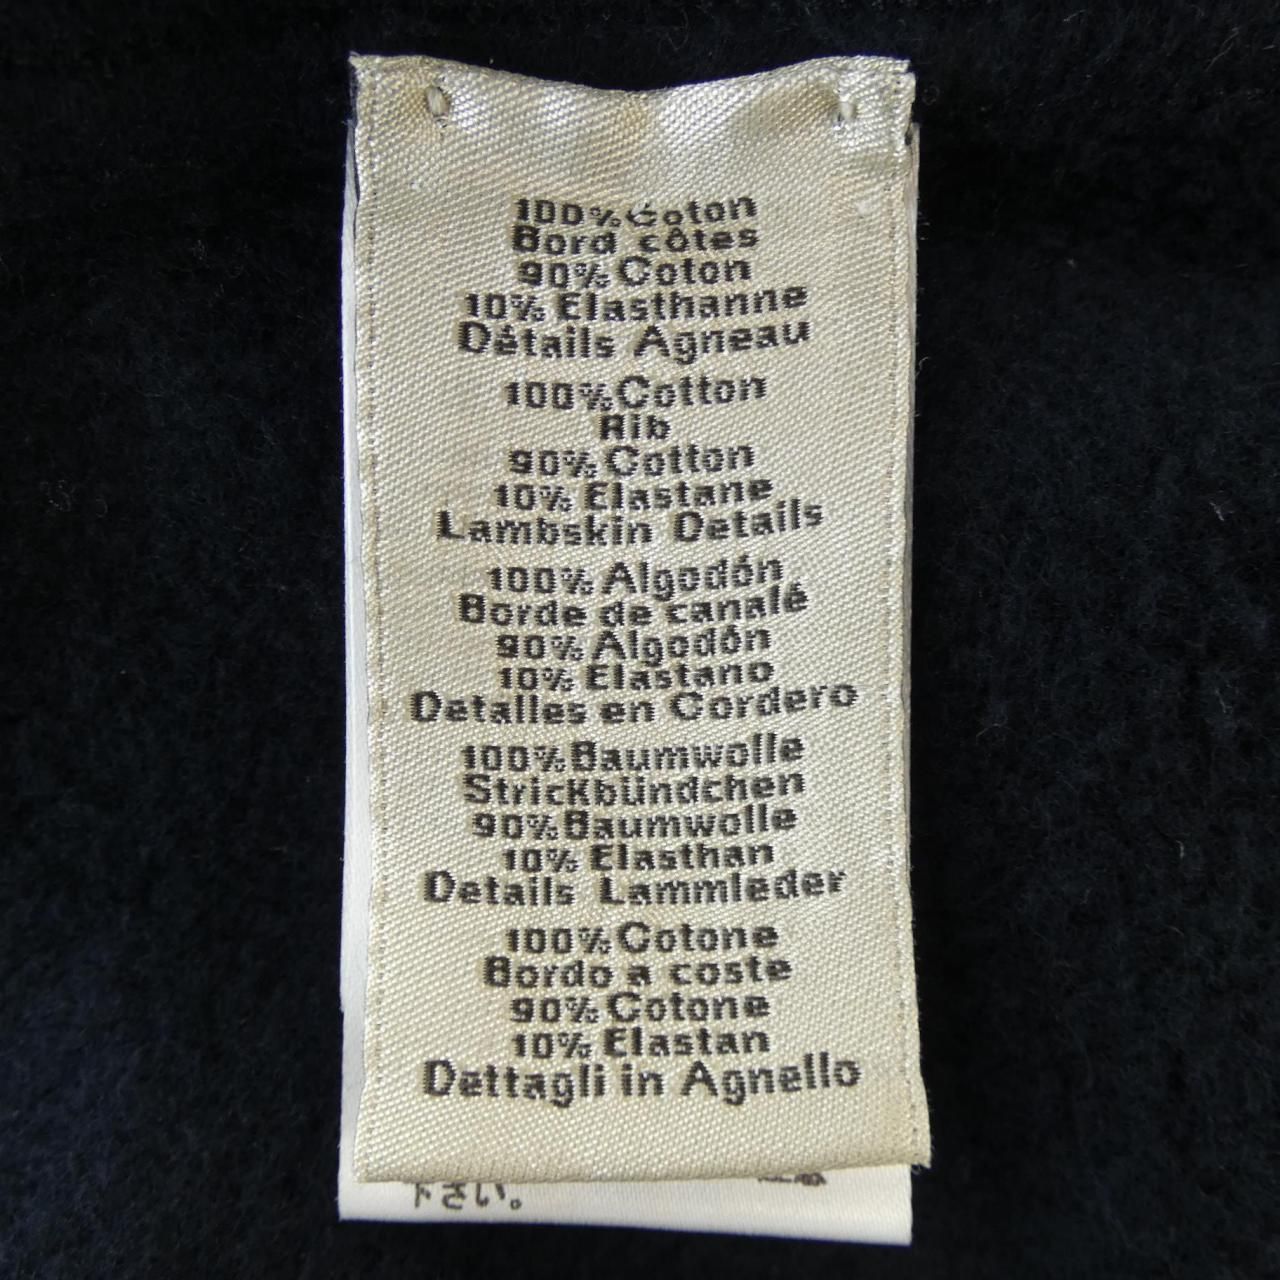 100% Coton
Bord côtes
90% Coton
10% Elasthanne
Détails Agneau
100% Cotton
Rib
90% Cotton
10% Elastane
Lambskin Details
100% Algodón
Borde de canalé
90% Algodón
10% Elastano
Detalles en Cordero
100% Baumwolle
Strickbündchen
90% Baumwolle
10% Elasthan
Details Lammleder
100% Cotone
Bordo a coste
90% Cotone
10% Elastan
Dettagli in Agnello